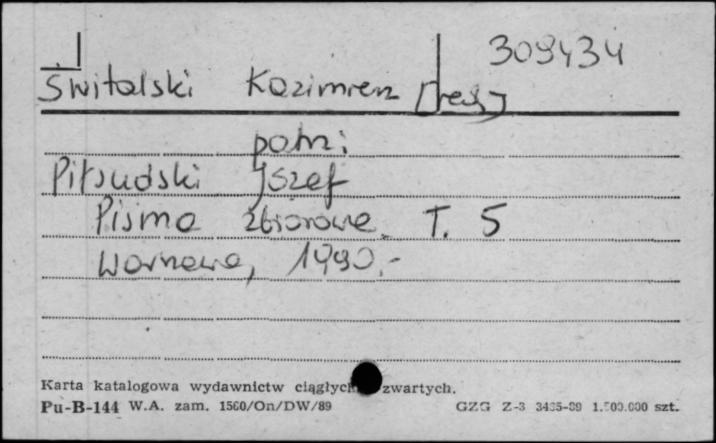 309434
Świtalski Kazimierz [red.]
patrz:
Piłsudski Józef
Pisma zbiorowe. T. 5
Warszawa, 1990.-
Karta katalogowa wydawnictw ciągłych zwartych.
Pu-B-144 W.A. zam. 1560/On/DW/89 GZG Z-3 3435-89 1.500.000 szt.